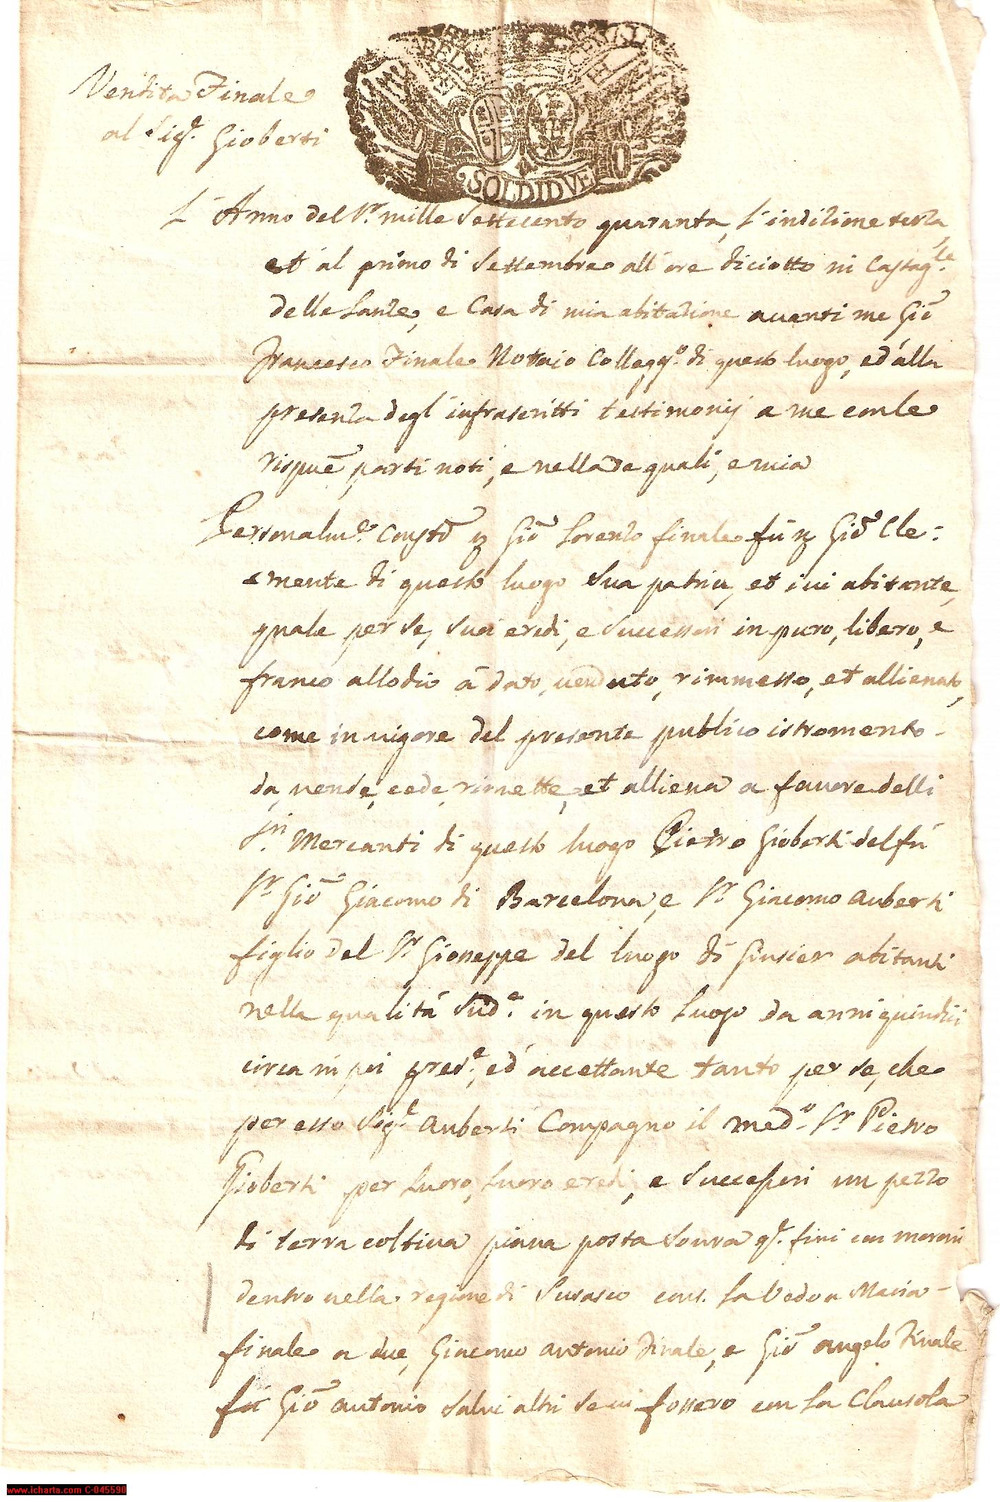 SOLDI DVE
Vendita Finale
al Sig.r Gioberti
L'Anno del Sr. mille Settecento quaranta, l'indizione terza,
et al primo di Settembre all'ore diciotto in Castag.le
delle Lanze, e Casa di mia abitazione avanti me Gio
Francesco Finale Nottaio Collegg.o di questo luogo, ed'alla
presenza degl'infrascritti testimonij a me con le
rispue parti noti, e nella de quali, e mia
Personalm.e Gio Lorenzo finale fu Gio Cle=
emente di questo luogo sua patria, et ivi abitante,
quale per se, suoi eredi, e successori in puro, libero, e
franco allodio à dato, venduto, rimmesso, et allienato,
come in vigore del presente publico istromento -
da, vende, cede, rimette, et alliena a favore delli
Sri. Mercanti di questo luogo Pietro Gioberti del fu
Sr. Gio Giacomo di Barcelona, e Sr. Giacomo Auberti
figlio del Sr. Gioseppe del luogo di abitanti
nella qualità Sud.e in questo luogo da anni quindici
circa in poi pres.e, ed' accettante tanto per se, che
per esso Sig.r Auberti Compagno il med.o Sr. Pietro
Gioberti per Luoro, Luoro eredi, e Successori un pezzo
di terra coltiva piana posta sovra q.e fini con moroni
dentro nella regione di Surasco cons. la Vedova Maria -
finale a due, Giacomo Antonio Finale, e Gio Angelo Finale
fu Gio Antonio salvi altri se vi fossero con la Clausola
www.icharta.com C-045590